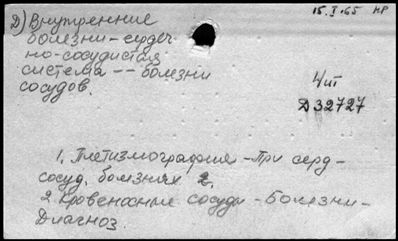 15.I.65 НР
Д) Внутренние
болезни - сердеч-
но-сосудистая
система -- болезни
сосудов.
4/ит
Д 32727
1. Плетизмография - При серд-
сосуд. болезнях 2.
2. Кровеносные сосуды - Болезни -
Диагноз.